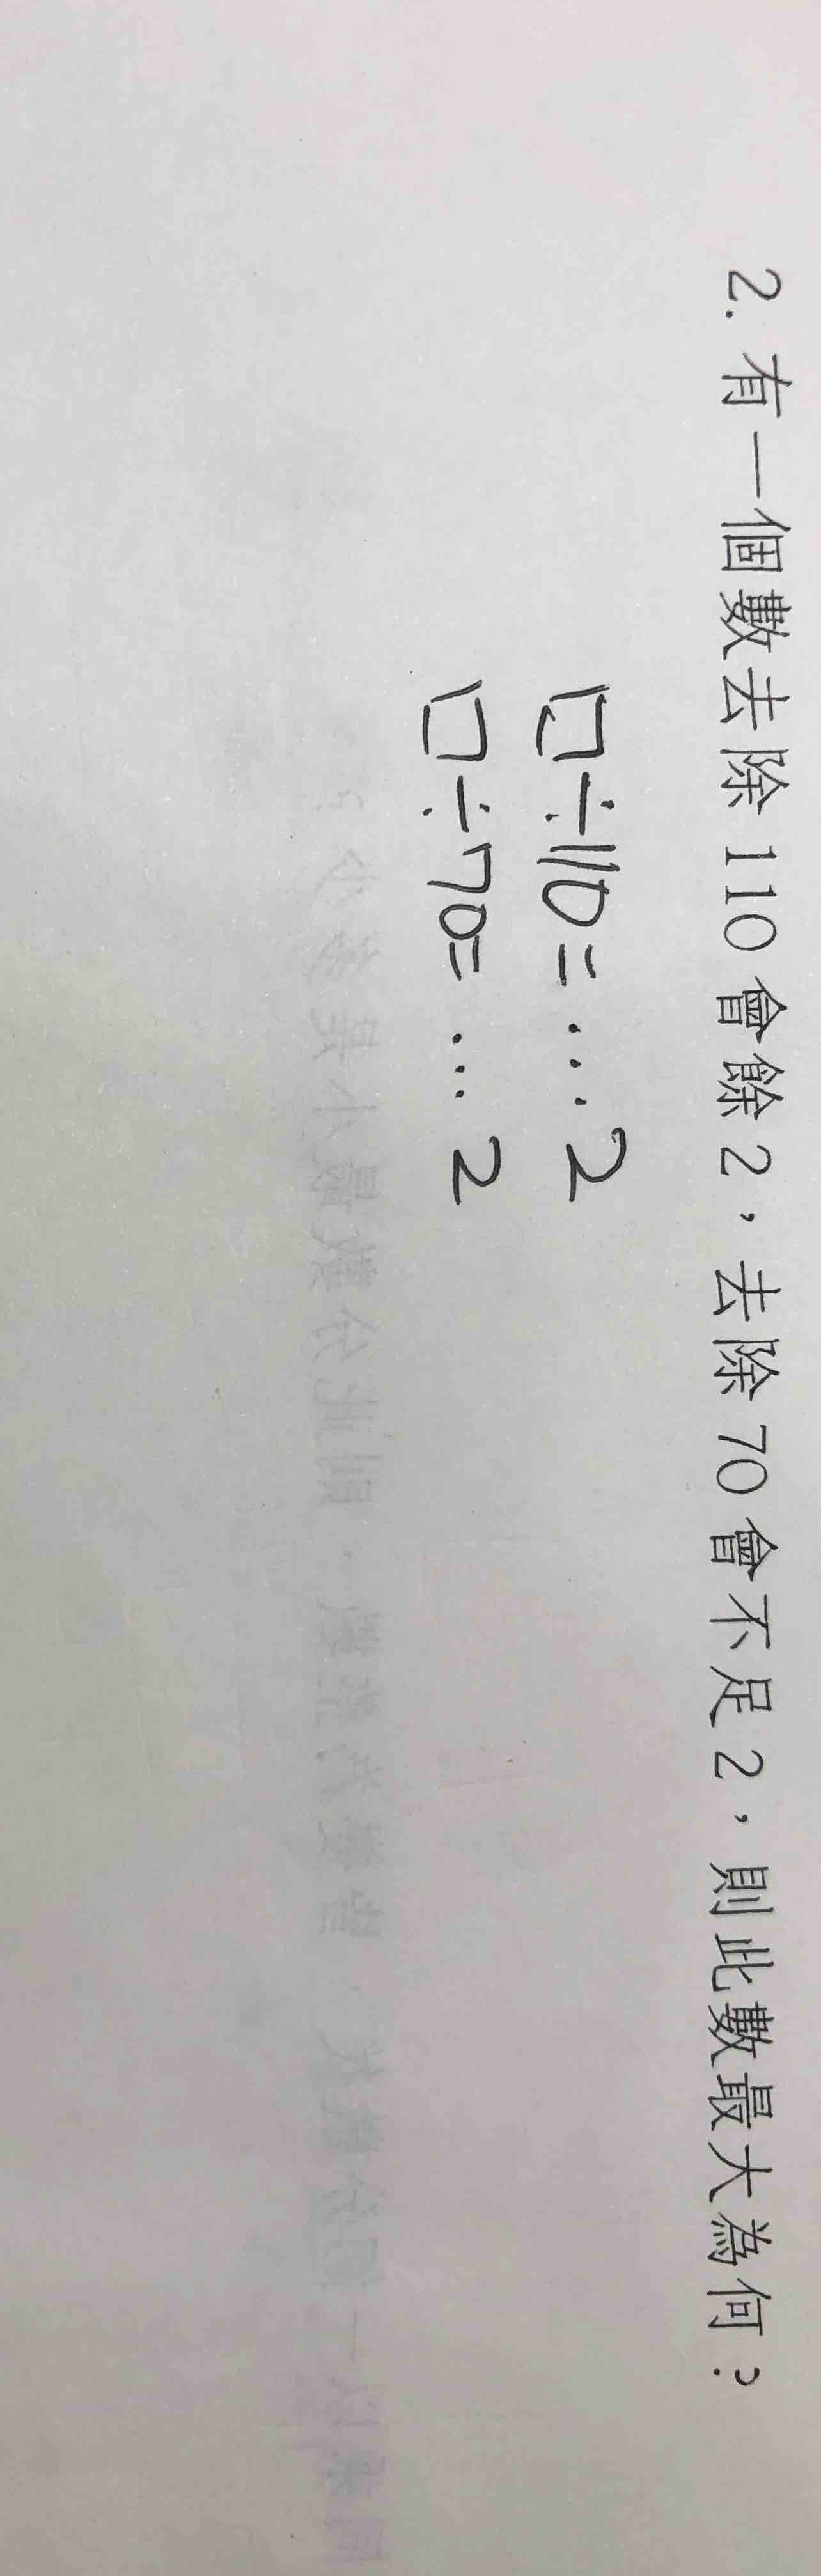 2. 有一個數去除110會餘2，去除70會不足2，則此數最大為何？
□÷110= ...2
□÷70= ...2